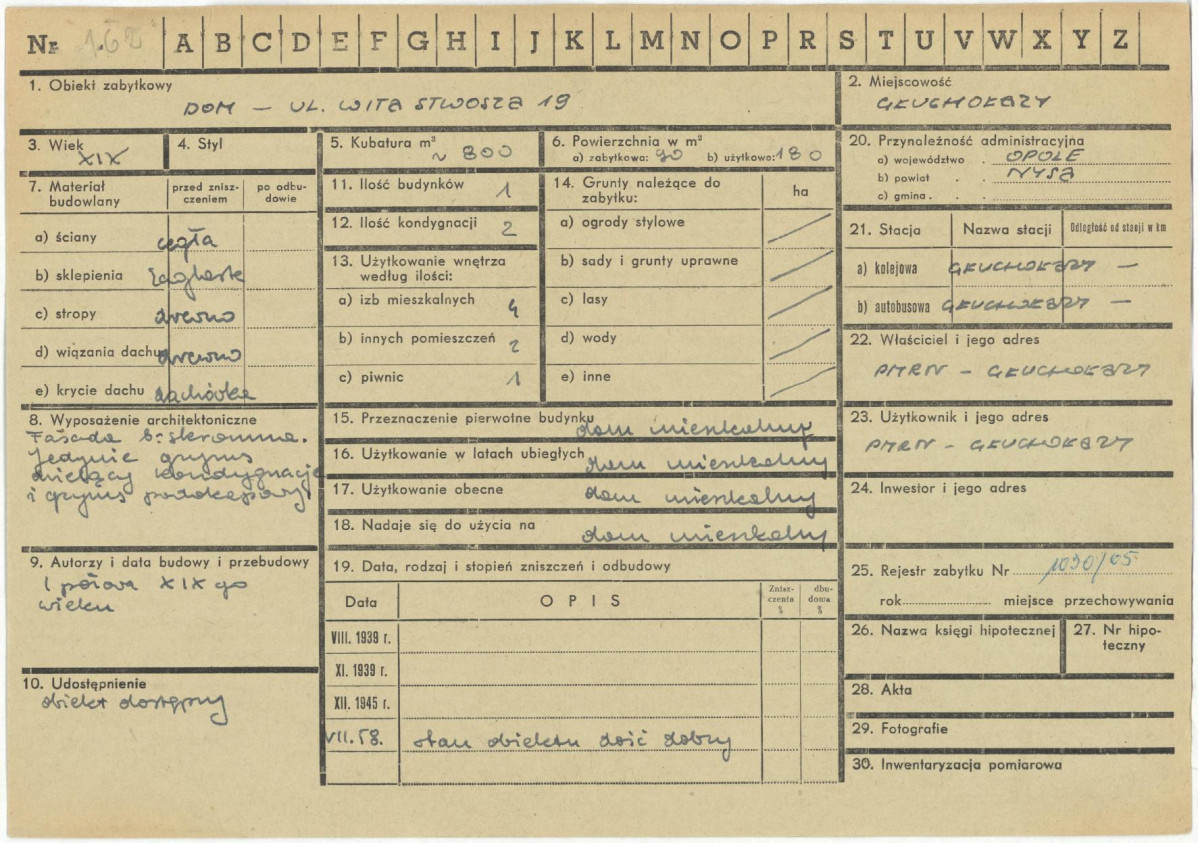 Nr 162 A B C D E F G H I J K L M N O P R S T U V W X Y Z
1. Obiekt zabytkowy
DOM – UL. WITA STWOSZA 19
2. Miejscowość
GŁUCHOŁAZY
3. Wiek
XIX
4. Styl
5. Kubatura m³
~ 800
6. Powierzchnia w m²
a) zabytkowa: 90 b) użytkowa: 180
20. Przynależność administracyjna
a) województwo . OPOLE
b) powiat . . NYSA
c) gmina . . .
7. Materiał budowlany
przed zniszczeniem
po odbudowie
a) ściany cegła
b) sklepienia
c) stropy drewno
d) wiązania dachu drewno
e) krycie dachu dachówka
11. Ilość budynków 1
12. Ilość kondygnacji 2
13. Użytkowanie wnętrza
według ilości:
a) izb mieszkalnych 4
b) innych pomieszczeń 2
c) piwnic 1
14. Grunty należące do
zabytku:
ha
a) ogrody stylowe
b) sady i grunty uprawne
c) lasy
d) wody
e) inne
21. Stacja
Nazwa stacji
Odległość od stacji w km
a) kolejowa GŁUCHOŁAZY –
b) autobusowa GŁUCHOŁAZY –
22. Właściciel i jego adres
PMRN – GŁUCHOŁAZY
23. Użytkownik i jego adres
PMRN – GŁUCHOŁAZY
24. Inwestor i jego adres
8. Wyposażenie architektoniczne
Fasada b. skromna.
Jedynie gzyms
dzielący kondygnacje
i gzyms podokapowy.
15. Przeznaczenie pierwotne budynku
dom mieszkalny
16. Użytkowanie w latach ubiegłych
dom mieszkalny
17. Użytkowanie obecne
dom mieszkalny
18. Nadaje się do użycia na
dom mieszkalny
9. Autorzy i data budowy i przebudowy
I połowa XIX go
wieku
10. Udostępnienie
obiekt dostępny
19. Data, rodzaj i stopień zniszczeń i odbudowy
Data
OPIS
Zniszczenia %
dbudowa %
VIII. 1939 r.
XI. 1939 r.
XII. 1945 r.
VII. 58. stan obiektu dość dobry
25. Rejestr zabytku Nr 1090/65
rok miejsce przechowywania
26. Nazwa księgi hipotecznej
27. Nr hipoteczny
28. Akta
29. Fotografie
30. Inwentaryzacja pomiarowa